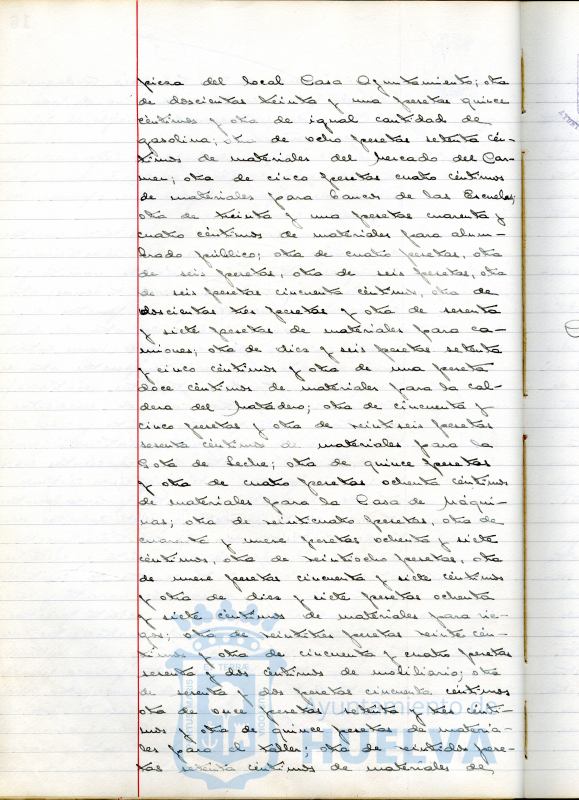 pieza del local Casa Ayuntamiento; otra
de doscientas treinta y una pesetas quince
céntimos y otra de igual cantidad de
gasolina; otra de ocho pesetas setenta cén-
timos de materiales del Mercado del Car-
men; otra de cinco pesetas cuatro céntimos
de materiales para bancos de las Escuelas;
otra de treinta y una pesetas cuarenta y
cuatro céntimos de materiales para alum-
brado público; otra de cuatro pesetas, otra
de seis pesetas, otra de seis pesetas, otra
de seis pesetas cincuenta céntimos, otra de
doscientas tres pesetas y otra de sesenta
y siete pesetas de materiales para ca-
miones; otra de diez y seis pesetas setenta
y cinco céntimos y otra de una peseta
doce céntimos de materiales para la cal-
dera del Matadero; otra de cincuenta y
cinco pesetas y otra de veintiseis pesetas
sesenta céntimos de materiales para la
Gota de Leche; otra de quince pesetas
y otra de cuatro pesetas ochenta céntimos
de materiales para la Casa de Máqui-
nas; otra de veinticuatro pesetas, otra de
cuarenta y nueve pesetas ochenta y siete
céntimos, otra de veintiocho pesetas, otra
de nueve pesetas cincuenta y siete céntimos
y otra de diez y siete pesetas ochenta
y siete céntimos de materiales para rie-
gos; otra de veintitres pesetas veinte cén-
timos y otra de cincuenta y cuatro pesetas
sesenta y dos céntimos de mobiliario; otra
de sesenta y dos pesetas cincuenta céntimos
otra de once pesetas setenta y tres cénti-
mos y otra de quince pesetas de materia-
les para el taller; otra de veintidos pese-
tas setenta céntimos de materiales de
Ayuntamiento de
HUELVA